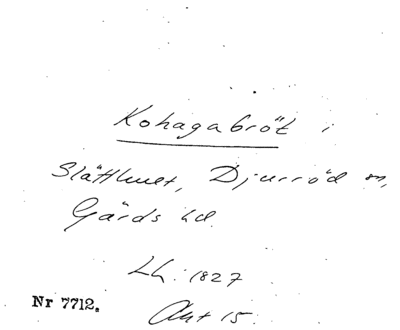 Kohagabröt i
Slätthult, Djurröd sn,
Gärds hd.
Lh. 1827
Akt 15.
Nr 7712.